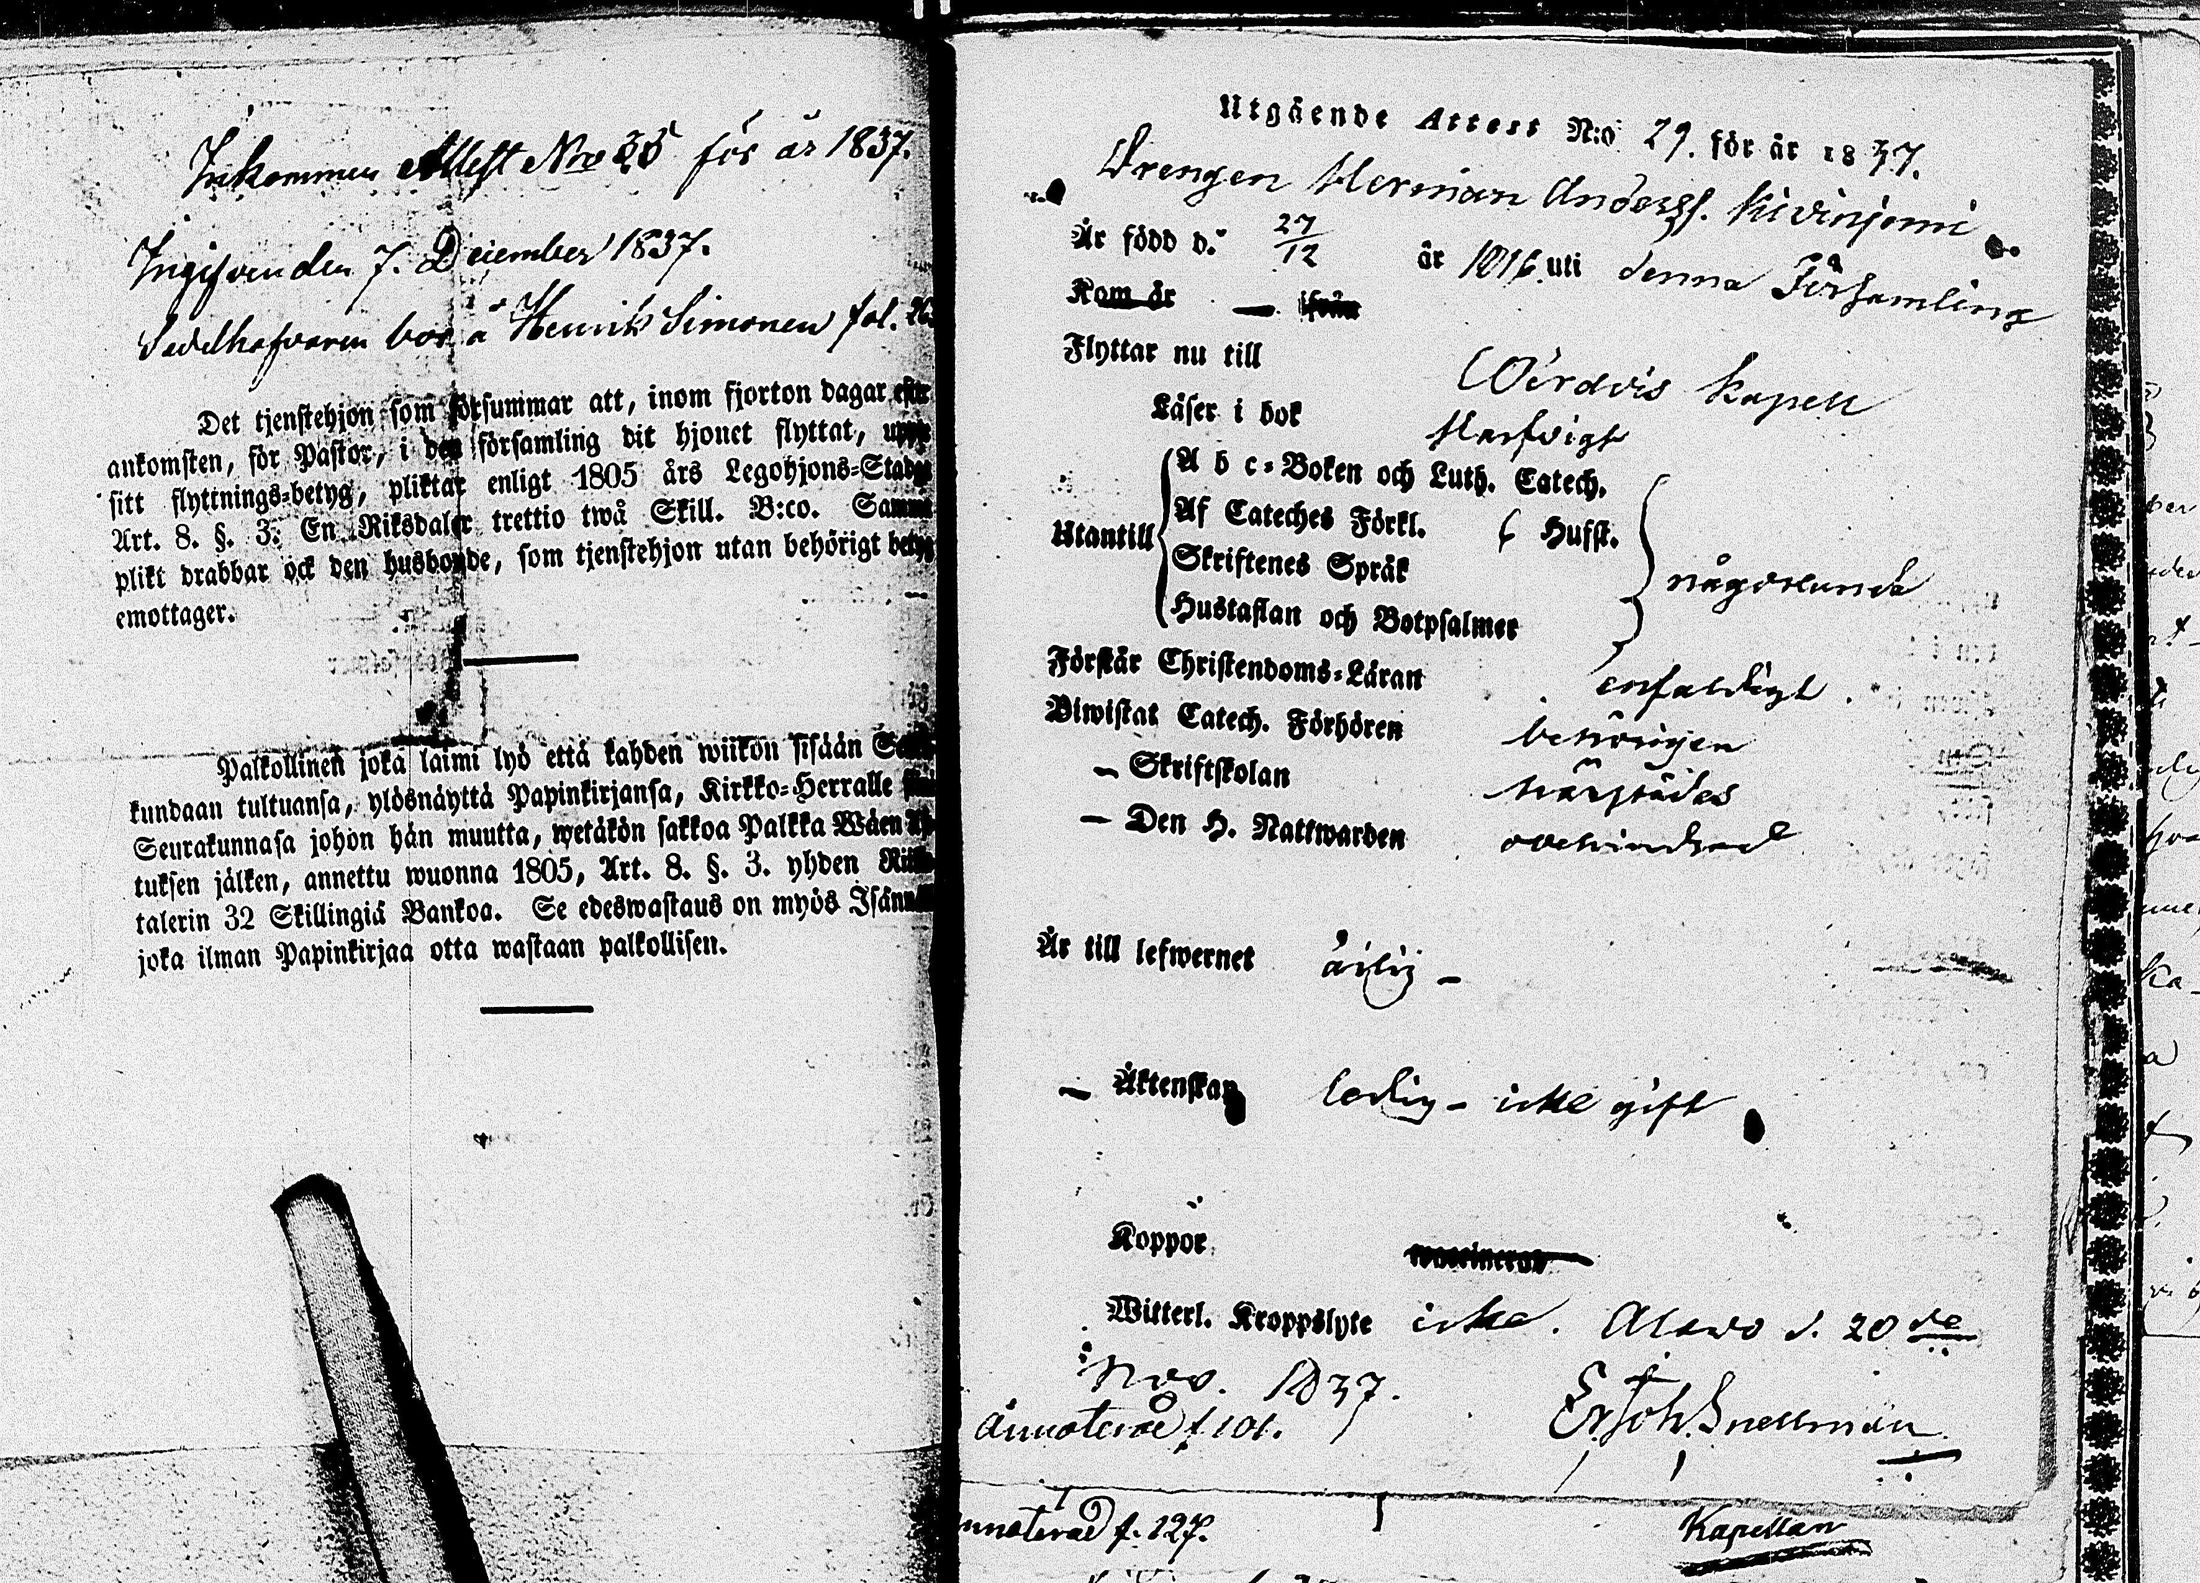 Inkommen Attest No 35 för år 1837.
Ingifven den 7. December 1837.
Sedelhafvaren bor å Henrik Simonen fol.
Det tjenstehjon som försummar att, inom fjorton dagar efter
ankomsten, för Pastor, i den församling dit hjonet flyttat, uppte
sitt flyttnings=betyg, pliktar enligt 1805 års Legohjons=Stadga
Art. 8. §. 3. En Riksdaler trettio twå Skill. B:co. Samma
plikt drabbar ock den husbonde, som tjenstehjon utan behörigt betyg
emottager.
Palkollinen joka laimi lyö että kahden wiikon sisään
kundaan tultuansa, ylösnäyttä Papinkirjansa, Kirkko=Herralle
Seurakunnasa johon hän muutta, wetäkön sakkoa Palkka Wäen
tuksen jälken, annettu wuonna 1805, Art. 8. §. 3. yhden
talerin 32 Skillingiä Bankoa. Se edeswastaus on myös
joka ilman Papinkirjaa otta wastaan palkollisen.
Utgående Attest N:o 29. för år 1837.
Drengen Herman Anderss. Kivinjemi
Är född d. 27/12 år 1816 uti denna Församling
Kom år — ifrån
Flyttar nu till Wirdois Kapell
Läser i bok Harfvigt
A b c=Boken och Luth. Catech.
Af Cateches Förkl. 6 Hufst.
Utantill
Skriftenes Språk någorlunda
Hustaflan och Botpsalmer
Förstår Christendoms=Läran enfaldigt.
Biwistat Catech. Förhören behörigen
— Skriftskolan
— Den H. Nattwarden ohindrad
Är till lefwernet ärlig —
— Äktenskap ledig — icke gift
Koppor
Witterl. Kroppslyte icke. Alawo d. 20de
Nov. 1837.
Er Joh. Snellman
Annoterad f 101.
Kapellan
nnoterad f. 127.